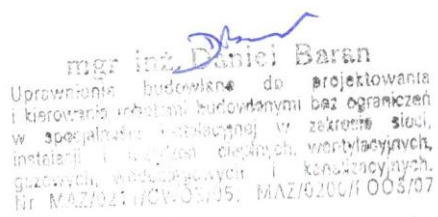 mgr inż. Daniel Baran
Uprawnienia budowlane do projektowania
i kierowania robotami budowlanymi bez ograniczeń
w specjalności instalacyjnej w zakresie sieci,
instalacji i urządzeń cieplnych, wentylacyjnych,
gazowych, wodociągowych i kanalizacyjnych.
Nr MAZ/0200/